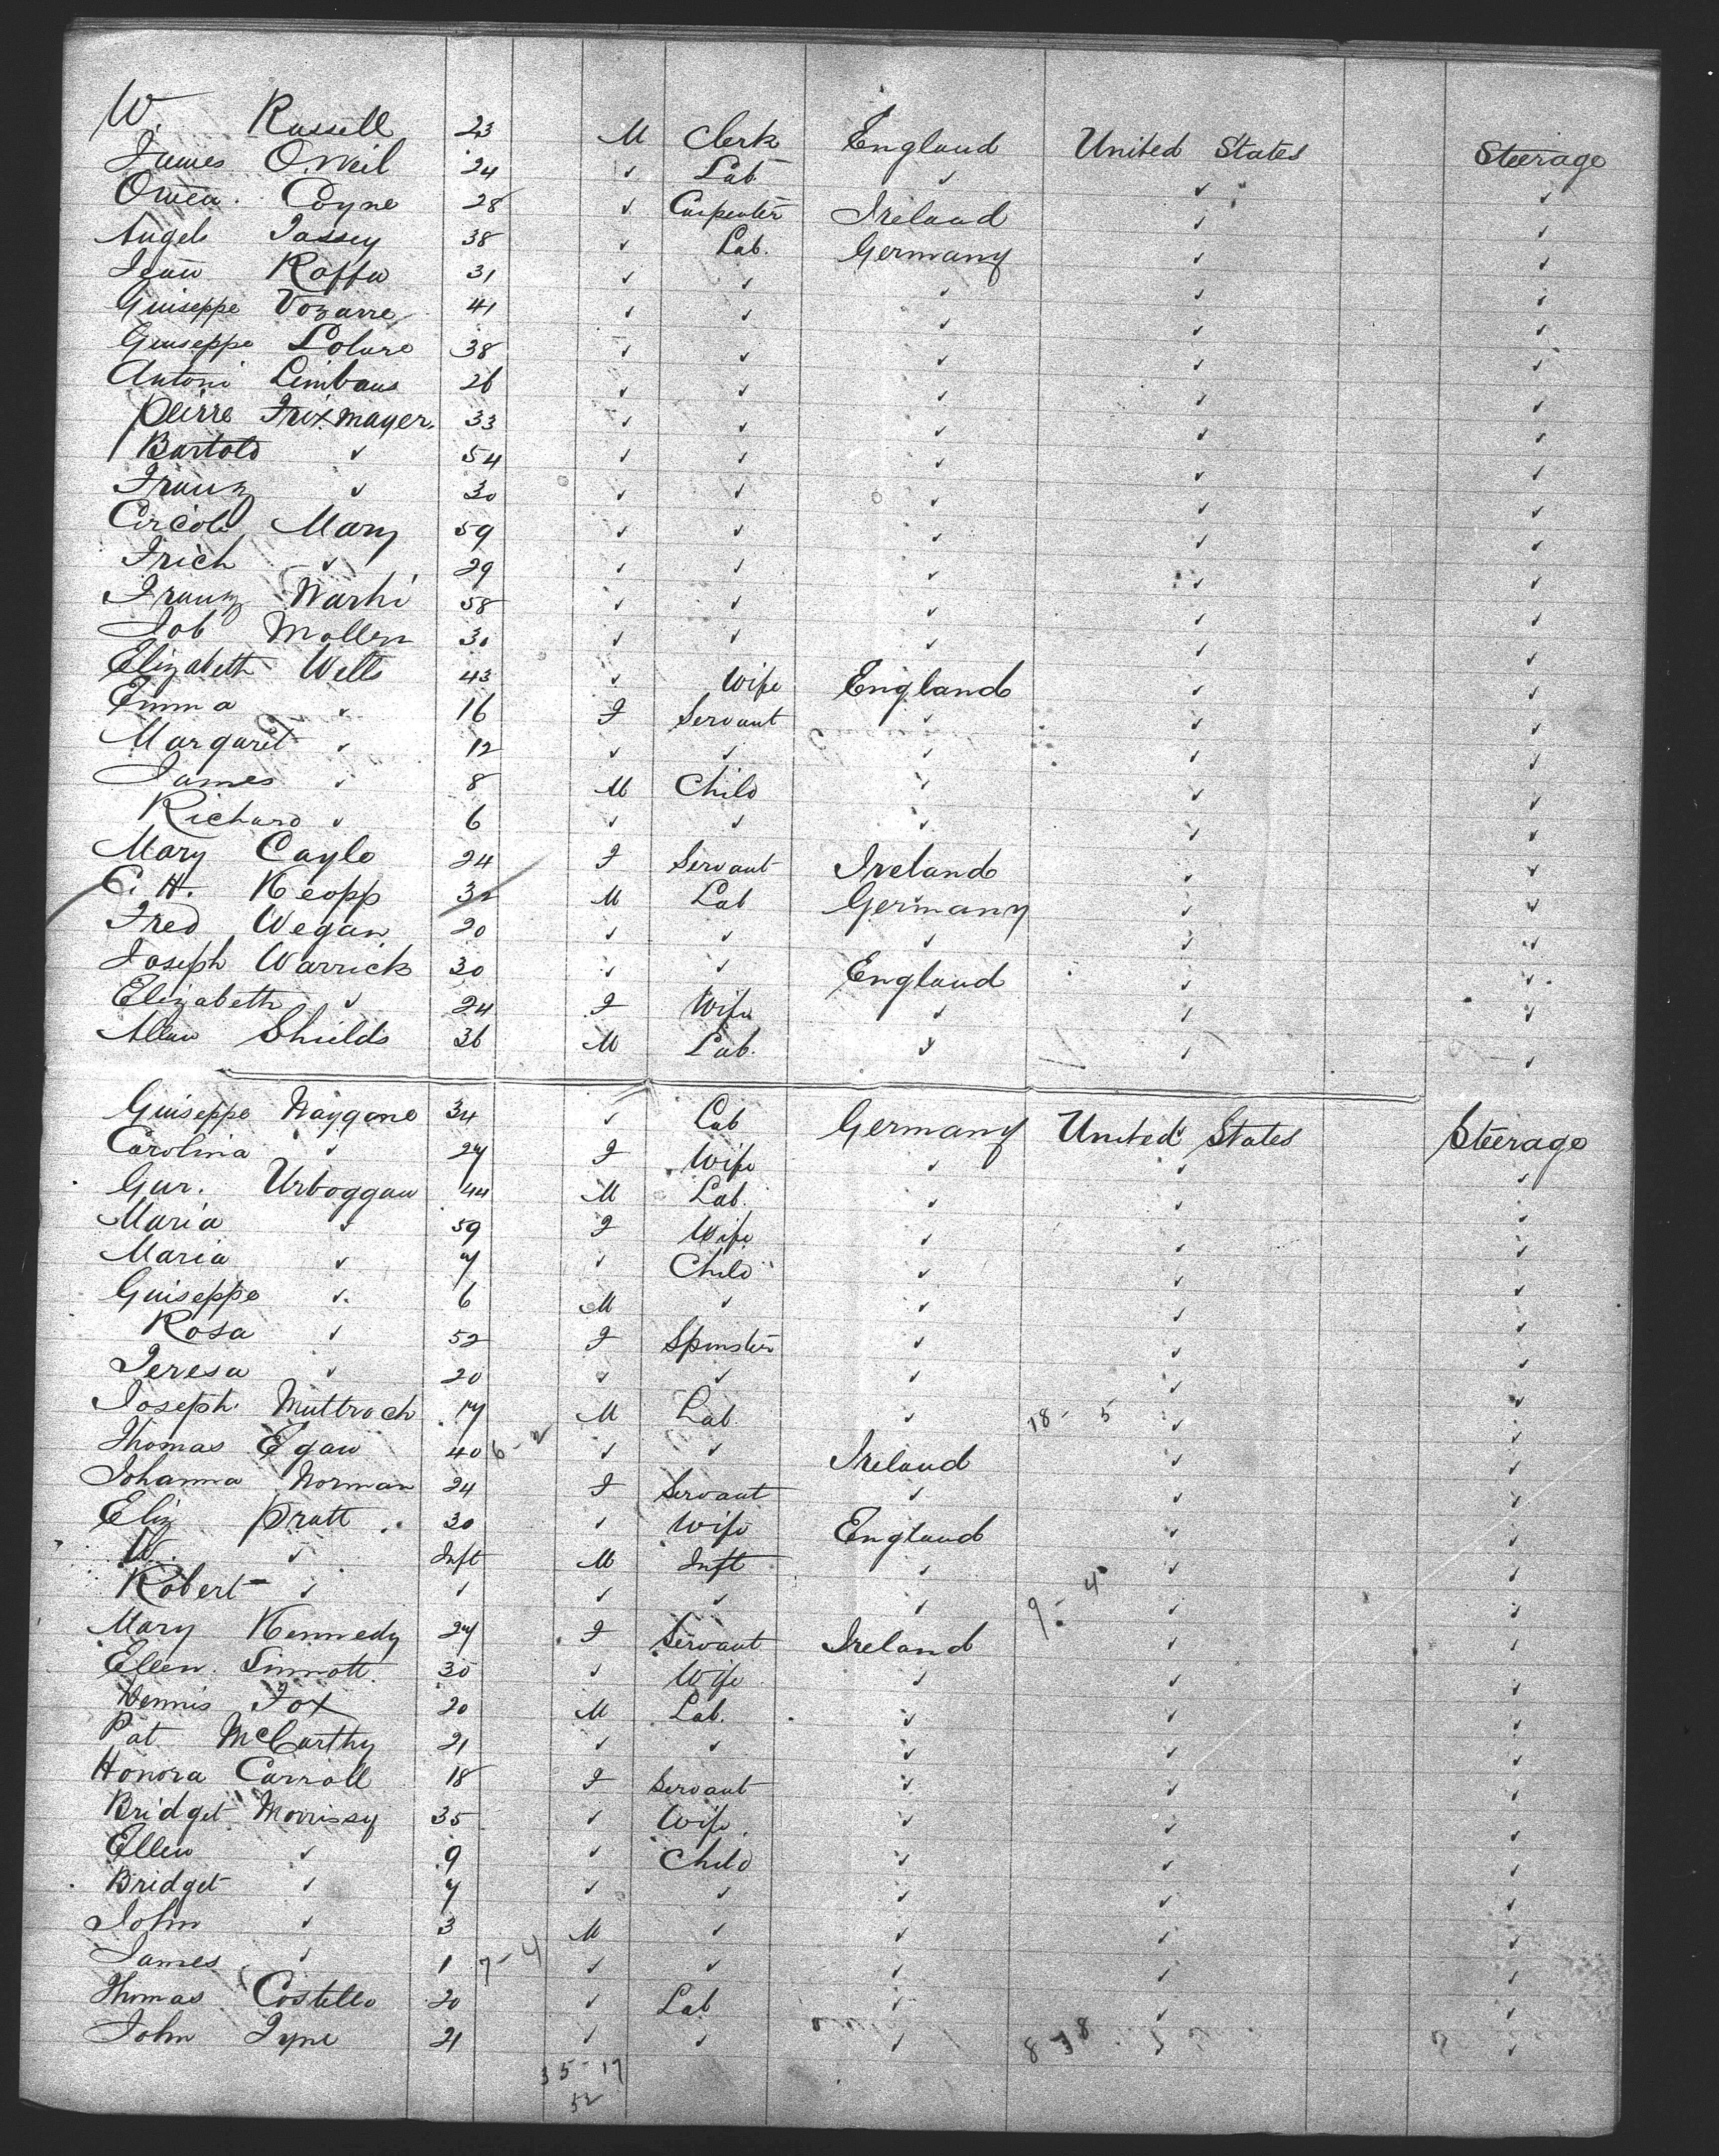 W. Russell 23 M Clerk England United States Steerage
James O.Neil 24 ✓ Lab ✓ ✓ ✓
Owen. Coyne 28 ✓ Carpenter Ireland ✓ ✓
Angelo Tassey 38 ✓ Lab. Germany ✓ ✓
Jean Roffa 31 ✓ ✓ ✓ ✓ ✓
Guiseppe Vozarre 41 ✓ ✓ ✓ ✓ ✓
Guiseppe Lolure 38 ✓ ✓ ✓ ✓ ✓
Antoni Limbaus 26 ✓ ✓ ✓ ✓ ✓
Peirre Frixmayer. 33 ✓ ✓ ✓ ✓ ✓
Bartold ✓ 54 ✓ ✓ ✓ ✓ ✓
Franz ✓ 30 ✓ ✓ ✓ ✓ ✓
Circolo Mary 59 ✓ ✓ ✓ ✓ ✓
Frich ✓ 29 ✓ ✓ ✓ ✓ ✓
Franz Warhi 58 ✓ ✓ ✓ ✓ ✓
Job Mollen 30 ✓ ✓ ✓ ✓ ✓
Elizabeth Wells 43 ✓ Wife England ✓ ✓
Emma ✓ 16 F Servant ✓ ✓ ✓
Margaret ✓ 12 ✓ ✓ ✓ ✓ ✓
James ✓ 8 M Child ✓ ✓ ✓
Richard ✓ 6 ✓ ✓ ✓ ✓ ✓
Mary Coyle 24 F Servant Ireland ✓ ✓
C. H. Keopp 32 M Lab Germany ✓ ✓
Fred Wegan 20 ✓ ✓ ✓ ✓ ✓
Joseph Warrick 30 ✓ ✓ England ✓ ✓
Elizabeth ✓ 24 F Wife ✓ ✓ ✓
Allan Shields 36 M Lab. ✓ ✓ ✓
Guiseppe Naygone 34 ✓ Lab Germany United States Steerage
Carolina ✓ 27 F Wife ✓ ✓ ✓
Gur. Urboggan 44 M Lab. ✓ ✓ ✓
Maria ✓ 59 F Wife ✓ ✓ ✓
Maria ✓ 7 ✓ Child ✓ ✓ ✓
Guiseppe ✓ 6 M ✓ ✓ ✓ ✓
Rosa ✓ 52 F Spinster ✓ ✓ ✓
Teresa ✓ 20 ✓ ✓ ✓ ✓ ✓
Joseph Muttroch 17 M Lab ✓ 18- 5 ✓ ✓
Thomas Egan 40 6-2 ✓ ✓ Ireland ✓ ✓
Johanna Norman 24 F Servant ✓ ✓ ✓
Eliz Pratt 30 ✓ Wife England ✓ ✓
W. ✓ Inft M Inft ✓ ✓ ✓
Robert ✓ ✓ ✓ ✓ ✓ 9-4 ✓ ✓
Mary Kennedy 27 F Servant Ireland ✓ ✓
Ellen. Sinnott 30 ✓ Wife ✓ ✓ ✓
Dennis Fox 20 M Lab. ✓ ✓ ✓
Pat McCarthy 21 ✓ ✓ ✓ ✓ ✓
Honora Carroll 18 F Servant ✓ ✓ ✓
Bridget Morrissy 35 ✓ Wife. ✓ ✓ ✓
Ellen ✓ 9 ✓ Child ✓ ✓ ✓
Bridget ✓ 7 ✓ ✓ ✓ ✓ ✓
John ✓ 3 M ✓ ✓ ✓ ✓
James ✓ 1 7-4 ✓ ✓ ✓ ✓ ✓
Thomas Costello 20 ✓ Lab ✓ ✓ ✓
John Tyne 21 ✓ ✓ ✓ ✓ ✓
35-17
52